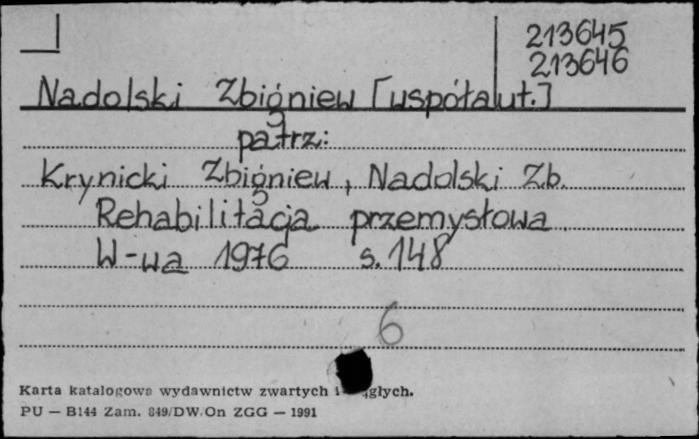 213645
213646
Nadolski Zbigniew [współaut.]
patrz:
Krynicki Zbigniew, Nadolski Zb.
Rehabilitacja przemysłowa
W-wa 1976 s. 148
6
Karta katalogowa wydawnictw zwartych i
PU — B144 Zam. 849/DW/On ZGG — 1991